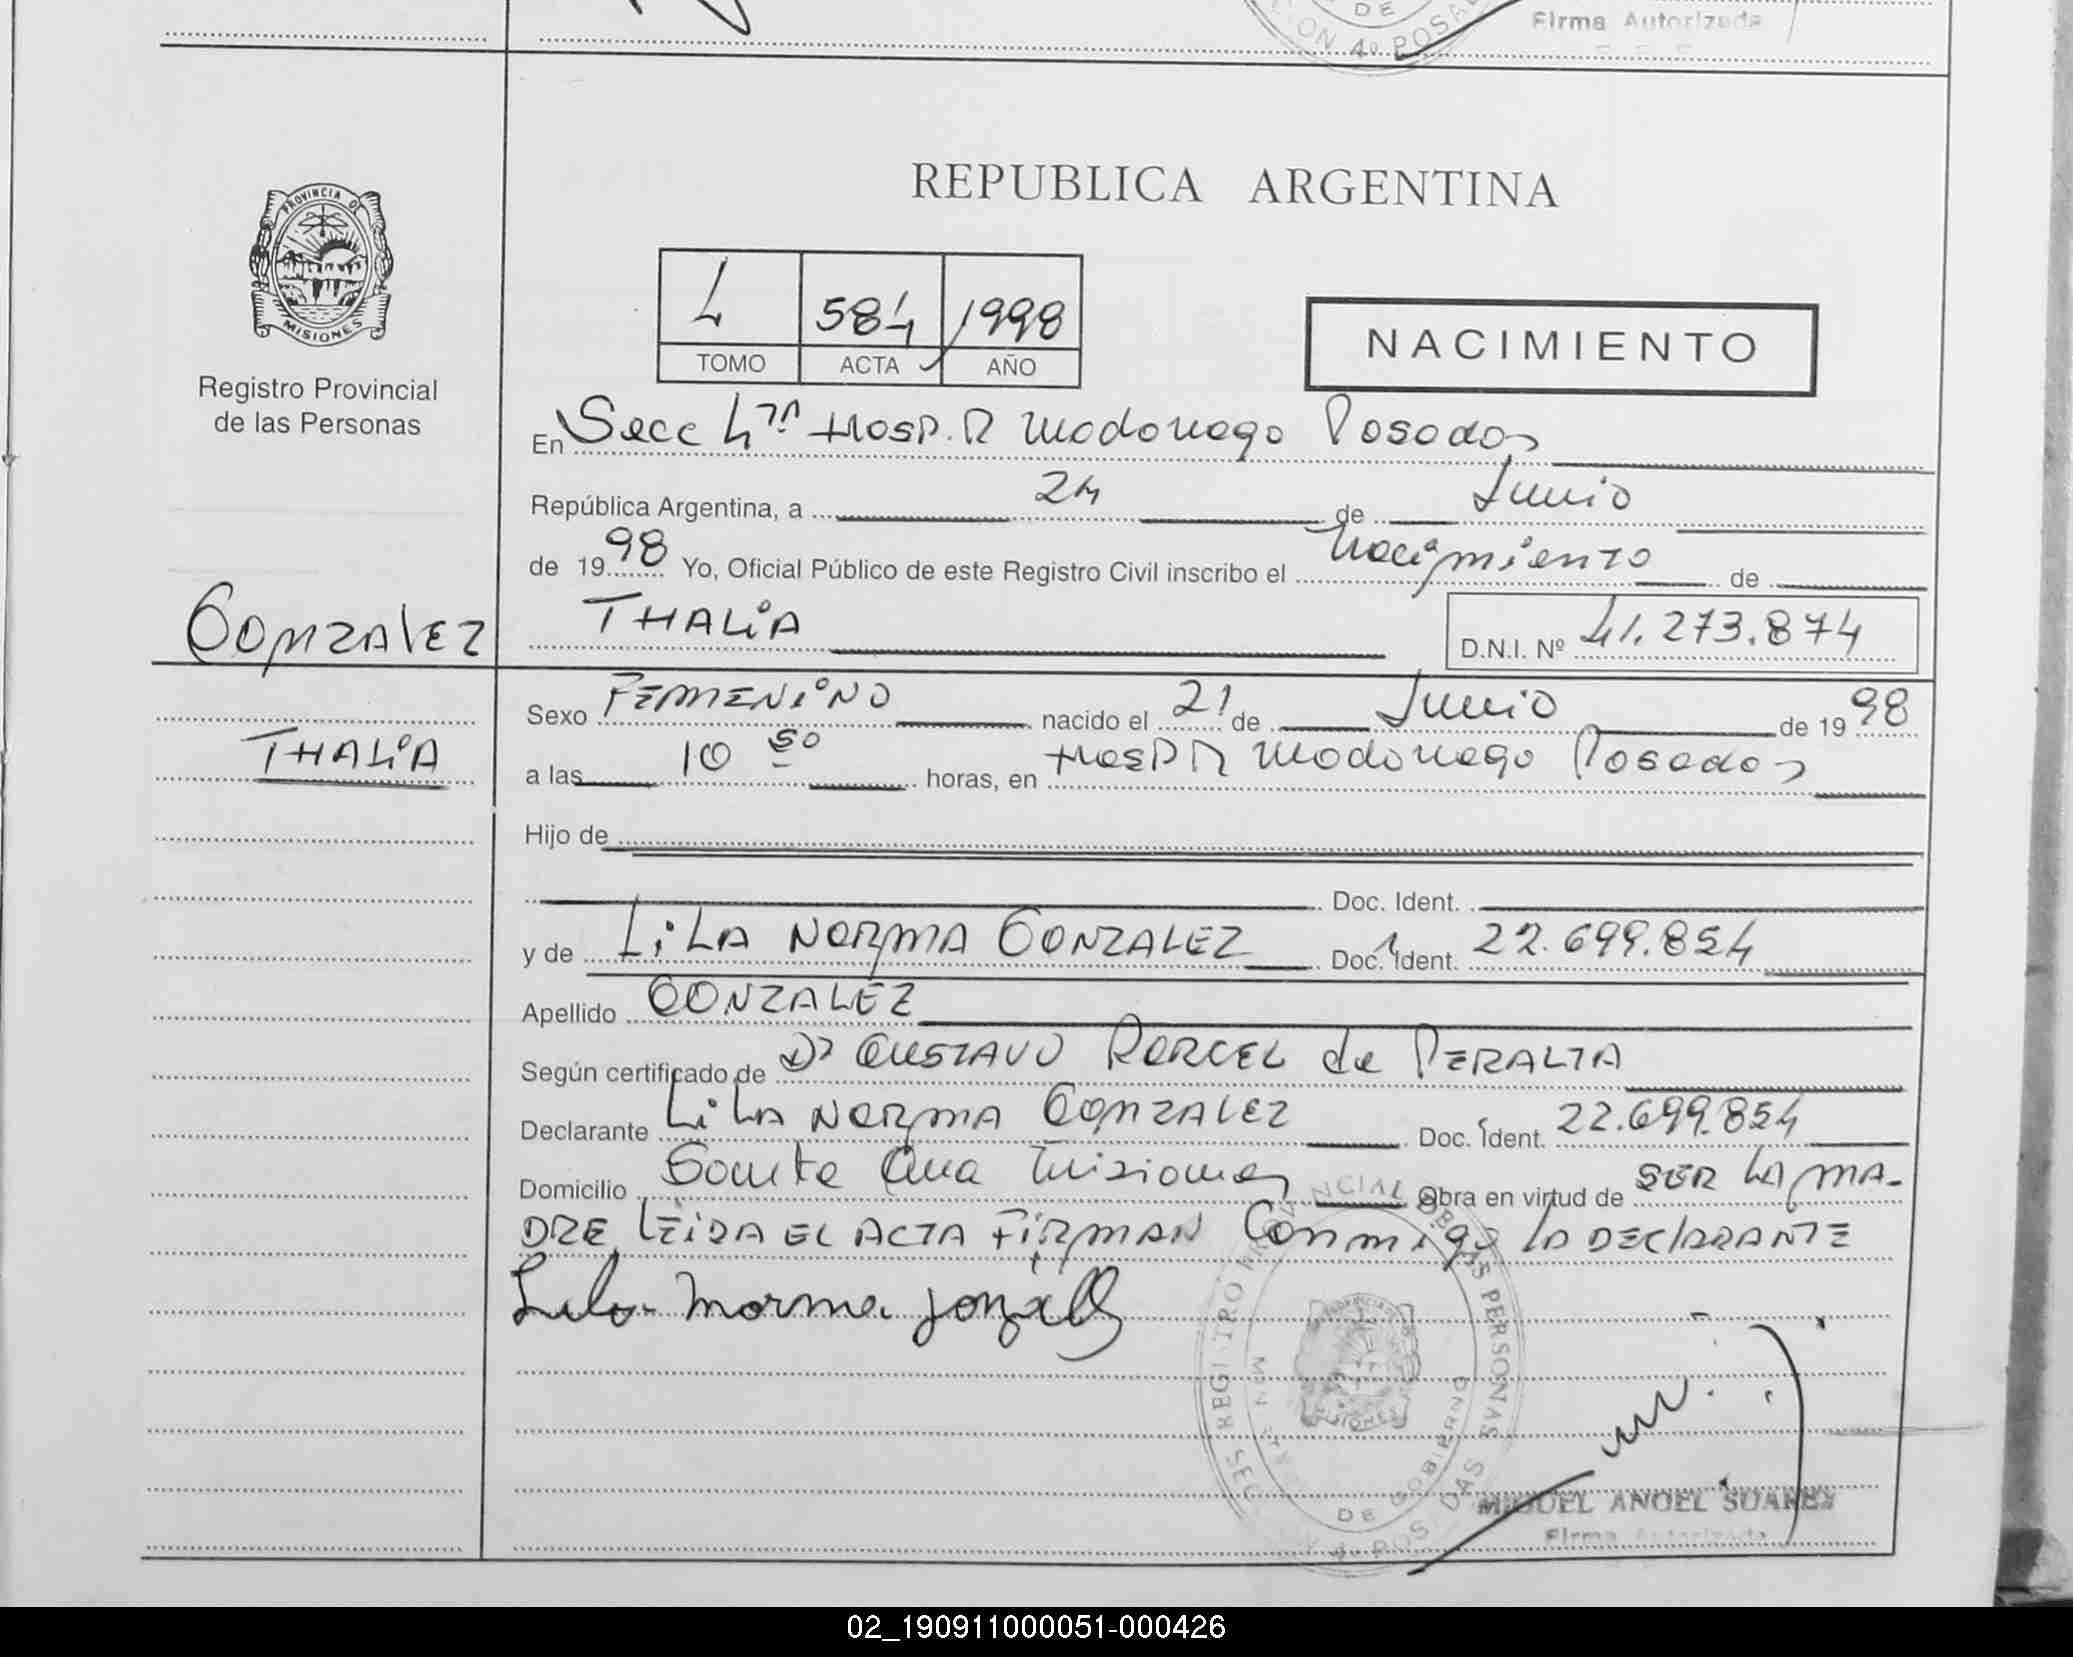 DE
ON 4º POSA
Firma Autorizada
PROVINCIA DE
MISIONES
Registro Provincial
de las Personas
REPUBLICA ARGENTINA
4 584 1998
TOMO ACTA AÑO
NACIMIENTO
En Secc 4ta Hosp. R Madariaga Posadas
República Argentina, a 24 de Junio
de 1998 Yo, Oficial Público de este Registro Civil inscribo el Nacimiento de
GONZALEZ
THALIA D.N.I. Nº 41.273.874
Sexo FEMENINO nacido el 21 de Junio de 1998
THALIA
a las 10 50 horas, en Hosp R Madariaga Posadas
Hijo de
Doc. Ident.
y de LiLA NORMA GONZALEZ Doc. Ident. 22.699.854
Apellido GONZALEZ
Según certificado de Dr GUSTAVO PORCEL de PERALTA
Declarante LiLA NORMA GONZALEZ Doc. Ident. 22.699.854
Domicilio Santa Ana Misiones Obra en virtud de SER LA MA-
DRE LEIDA EL ACTA FIRMAN Conmigo LA DECLARANTE
Lila Norma Gonzalez
REGISTRO PERSONAS
DE GOBIERNO
MISIONES
MIGUEL ANGEL SUAREZ
Firma Autorizada
02_190911000051-000426